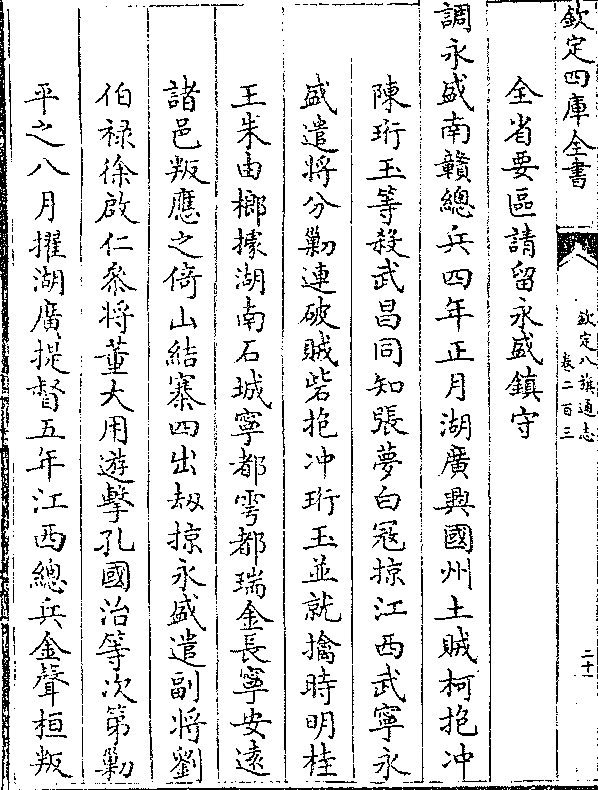 欽定四庫全書
欽定八旗通志
卷二百三
二十一
全省要區請留永盛鎮守
調永盛南贛總兵四年正月湖廣興國州土賊柯抱冲
陳珩玉等殺武昌同知張夢白冦掠江西武寧永
盛遣將分勦連破賊砦抱冲珩玉並就擒時明桂
王朱由榔據湖南石城寧都雩都瑞金長寧安遠
諸邑叛應之倚山結寨四出刼掠永盛遣副將劉
伯禄徐啟仁叅將董大用遊擊孔國治等次第勦
平之八月擢湖廣提督五年江西總兵金聲桓叛